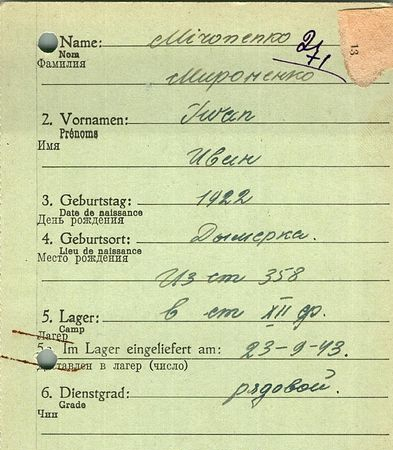 Name: Mironenko
Nom
Фамилия
Мироненко
13
2. Vornamen: Iwan
Prénoms
Имя
Иван
3. Geburtstag: 1922
Date de naissance
День рождения
4. Geburtsort: Дымерка.
Lieu de naissance
Место рождения
Из ст 358
5. Lager: в ст XII ф.
Camp
Лагер
5a. Im Lager eingeliefert am: 23-9-43.
Доставлен в лагер (число)
6. Dienstgrad: рядовой.
Grade
Чин